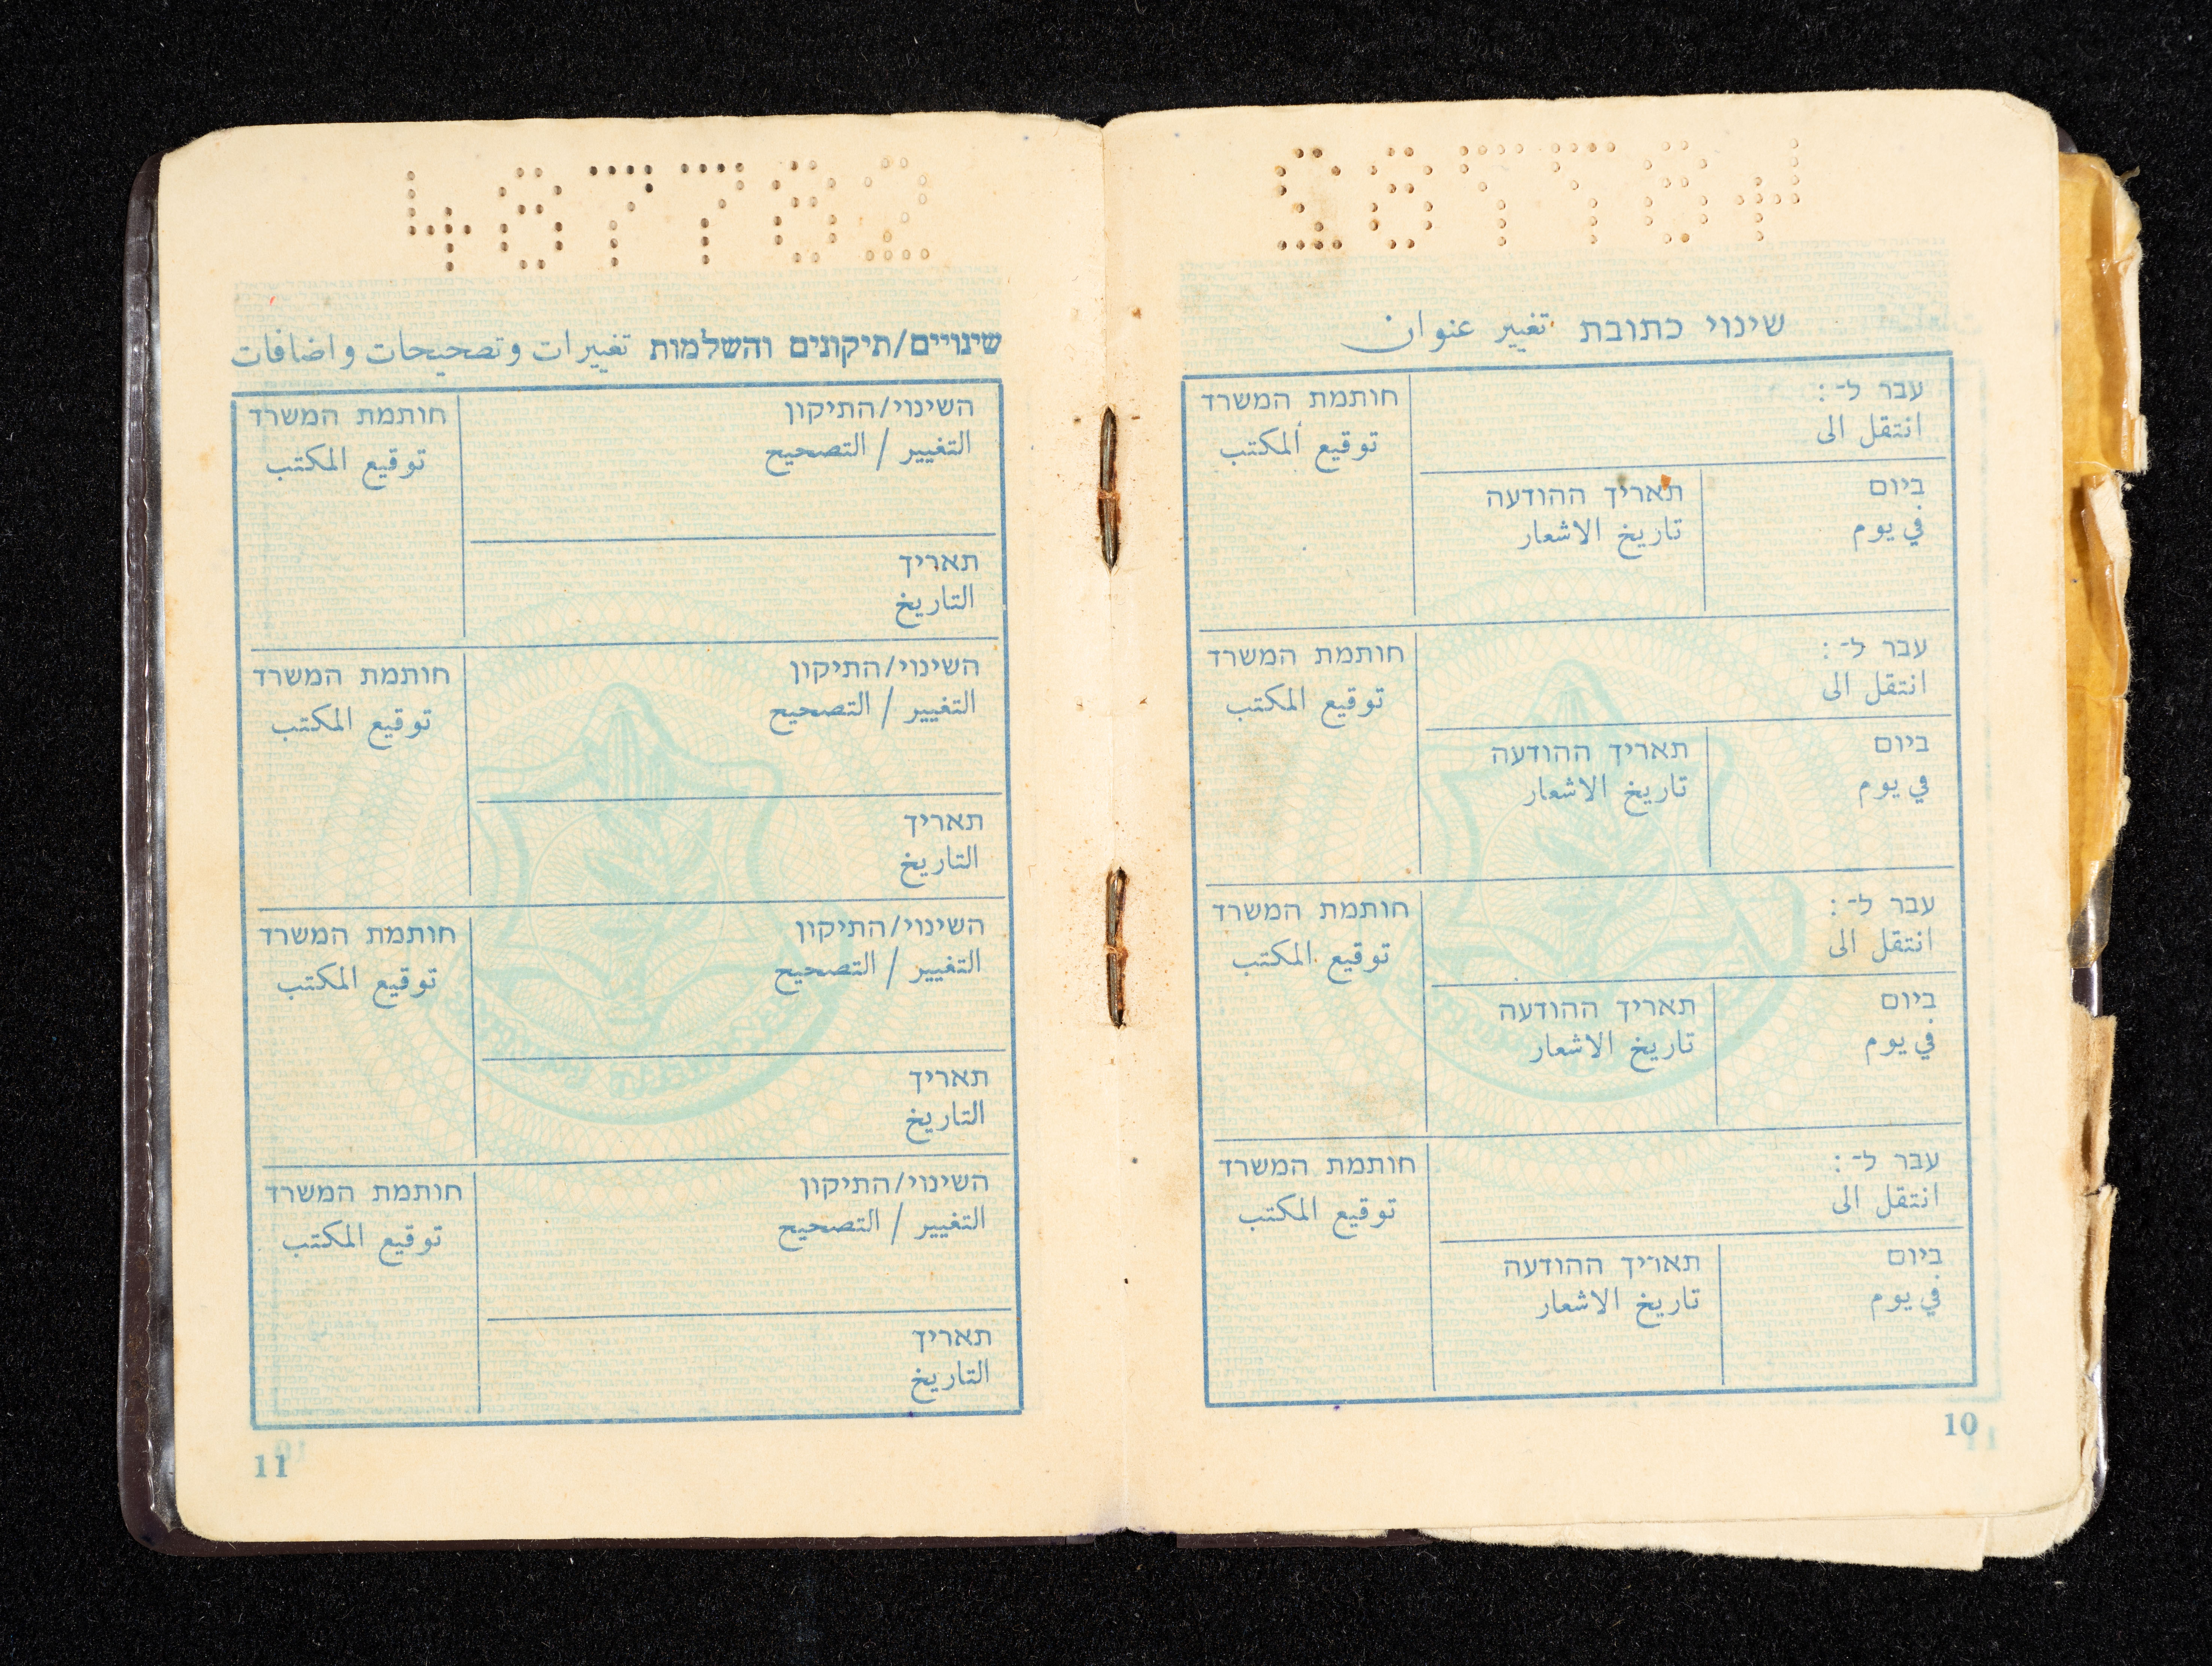 שינוי כתובת تغيير عنوان
עבר ל־:
انتقل الى
חותמת המשרד
توقيع المكتب
ביום
في يوم
תאריך ההודעה
تاريخ الاشعار
עבר ל־:
انتقل الى
חותמת המשרד
توقيع المكتب
ביום
في يوم
תאריך ההודעה
تاريخ الاشعار
עבר ל־:
انتقل الى
חותמת המשרד
توقيع المكتب
ביום
في يوم
תאריך ההודעה
تاريخ الاشعار
עבר ל־:
انتقل الى
חותמת המשרד
توقيع المكتب
ביום
في يوم
תאריך ההודעה
تاريخ الاشعار
10
487782
שינויים/תיקונים והשלמות تغييرات وتصحيحات واضافات
השינוי/התיקון
التغيير / التصحيح
חותמת המשרד
توقيع المكتب
תאריך
التاريخ
השינוי/התיקון
التغيير / التصحيح
חותמת המשרד
توقيع المكتب
תאריך
التاريخ
השינוי/התיקון
التغيير / التصحيح
חותמת המשרד
توقيع المكتب
תאריך
التاريخ
השינוי/התיקון
التغيير / التصحيح
חותמת המשרד
توقيع المكتب
תאריך
التاريخ
11